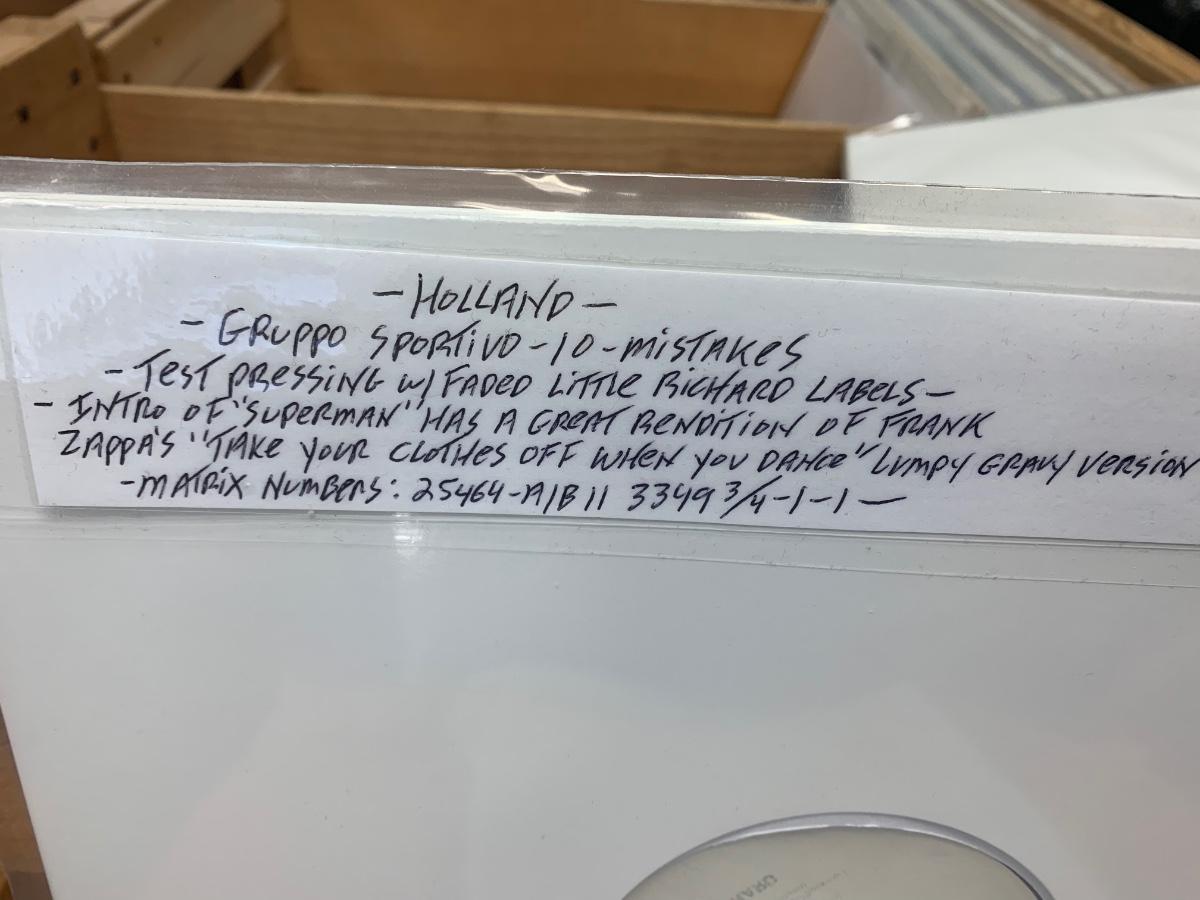 -HOLLAND-
- GRUPPO SPORTIVO-10-MISTAKES
- TEST PRESSING W/ FADED LITTLE RICHARD LABELS-
- INTRO OF "SUPERMAN" HAS A GREAT RENDITION OF FRANK
ZAPPA'S "TAKE YOUR CLOTHES OFF WHEN YOU DANCE" LUMPY GRAVY VERSION
-MATRIX NUMBERS: 25464-A/B 11 3349 3/4-1-1-